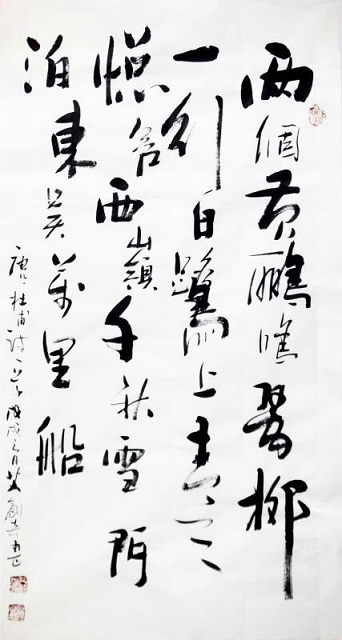 两個黄鸝鳴翠柳
一行白鷺上青天
窻含西嶺千秋雪門
泊東吴萬里船
唐杜甫詩一首戊戌